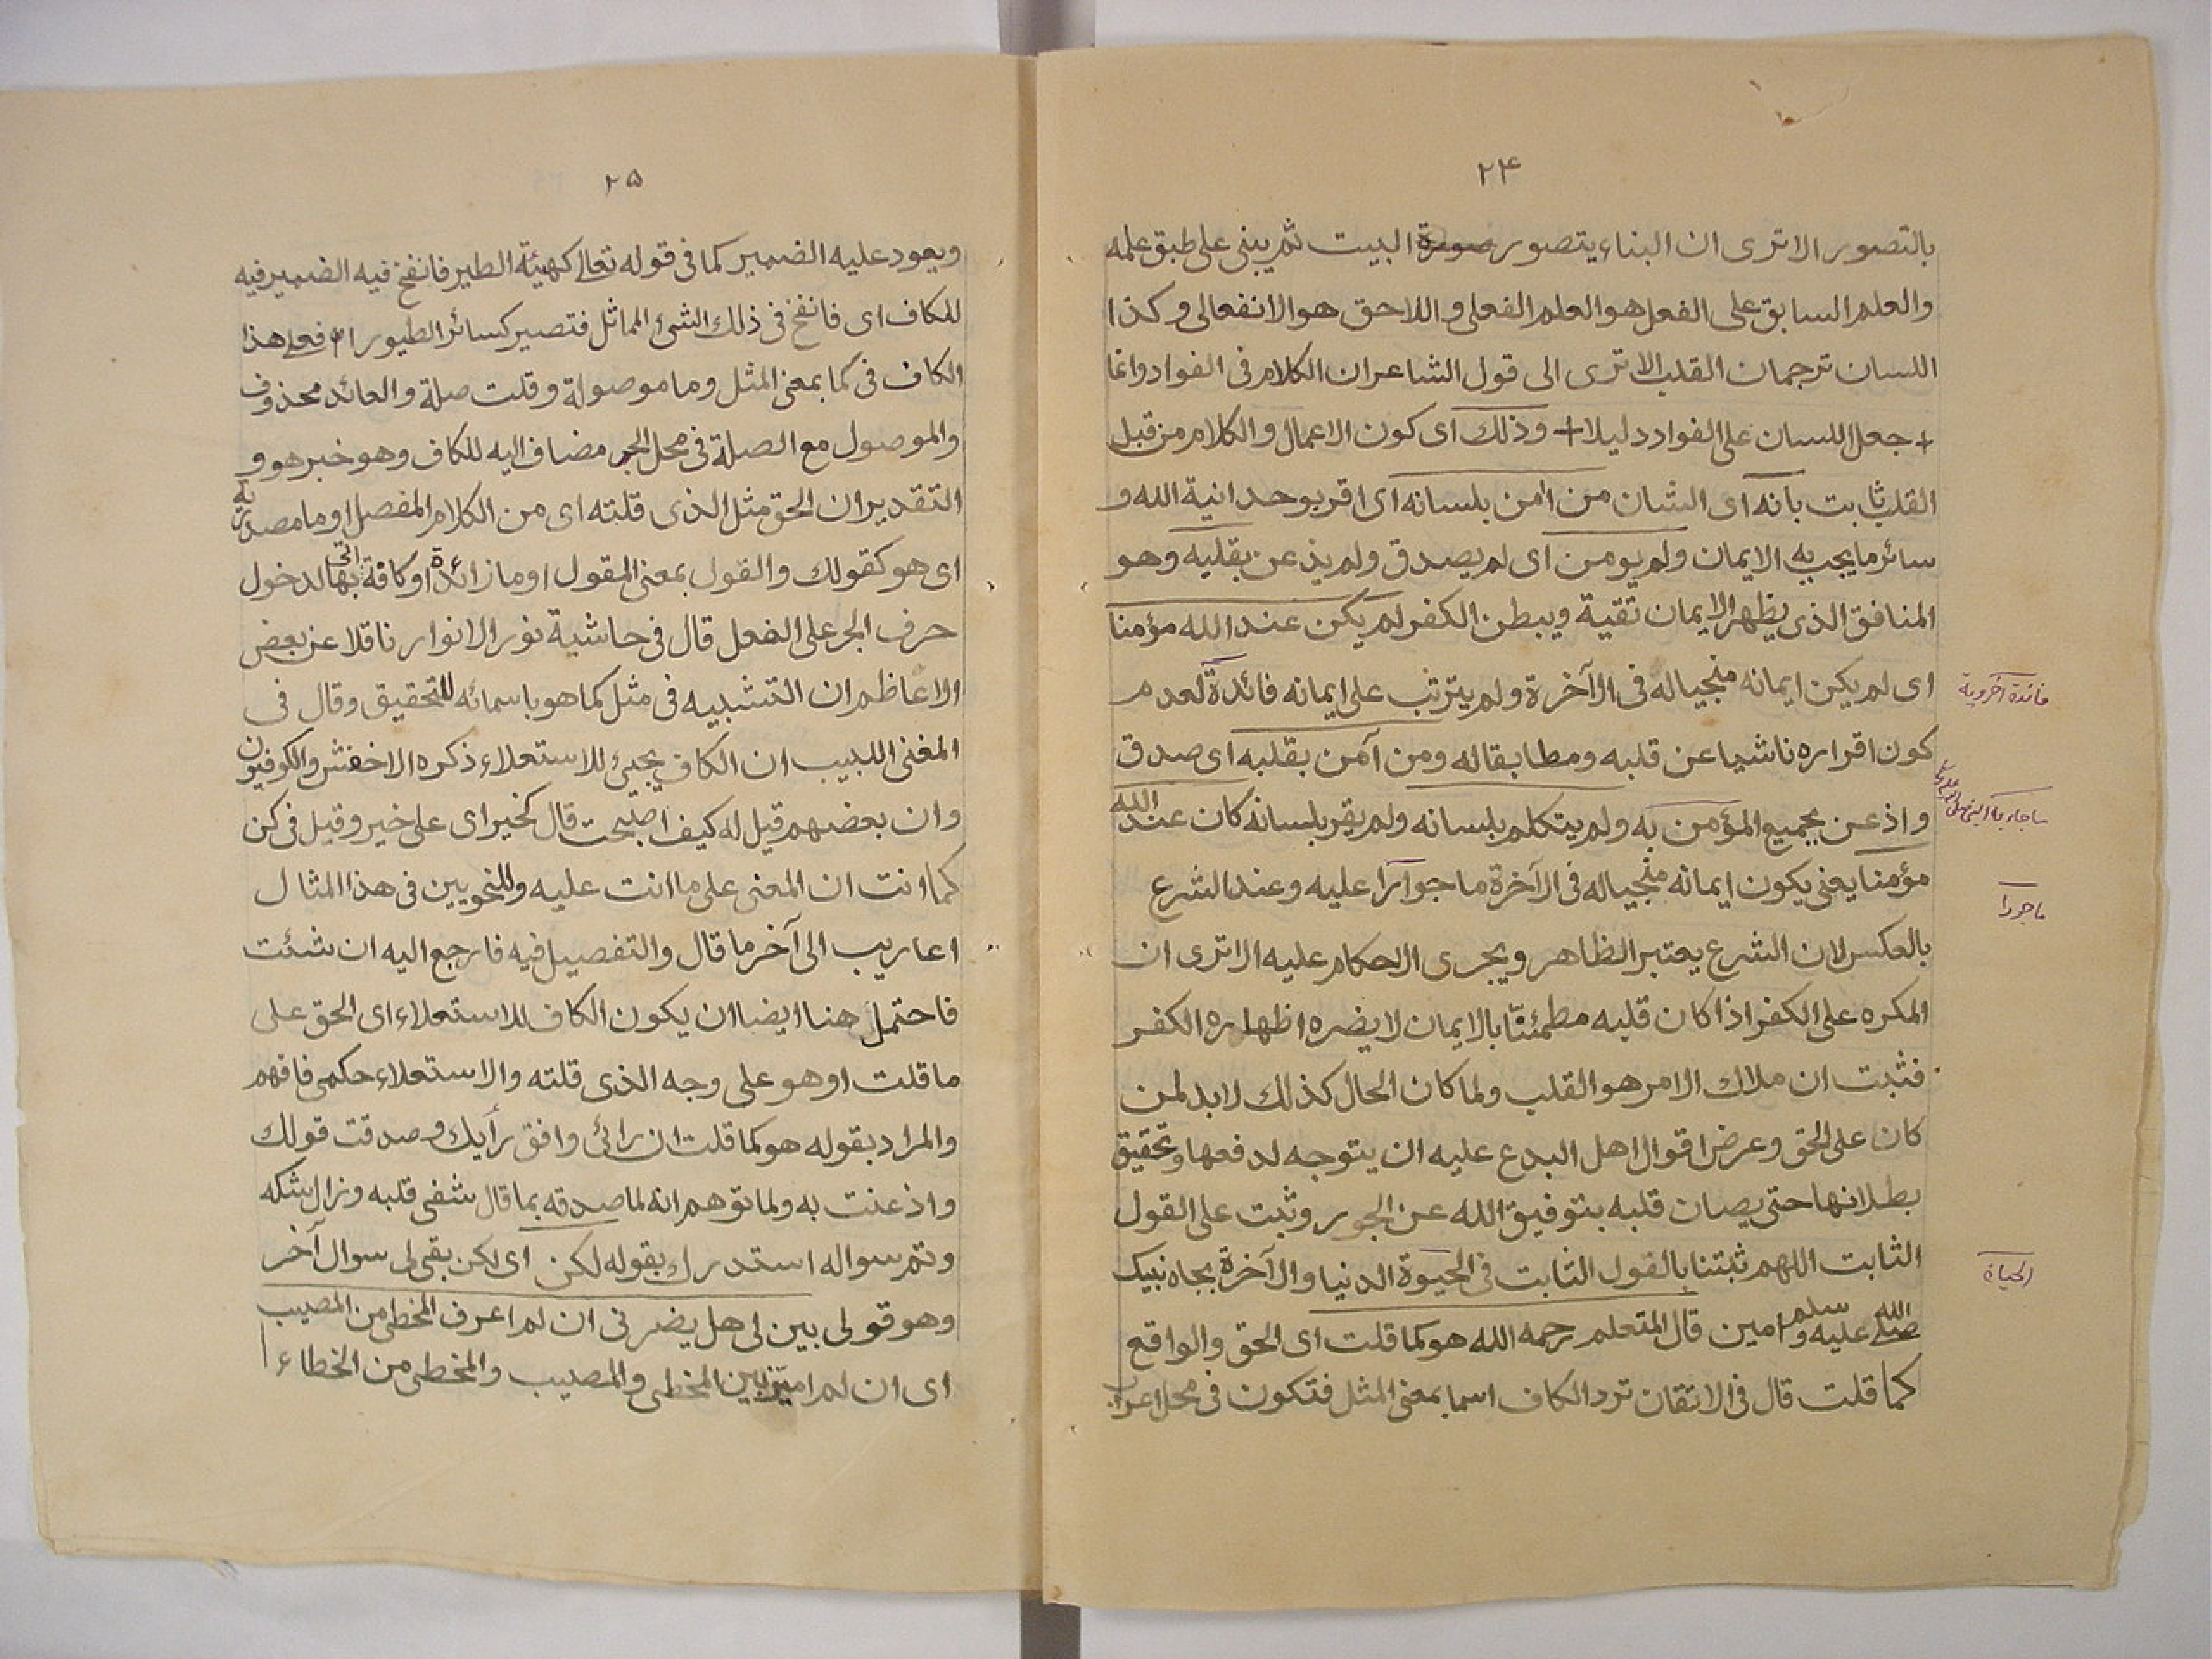 ۲۴
بالتصور الا ترى ان البناء يتصور صورة البيت ثم يبنى على طبق علمه
والعلم السابق على الفعل هو العلم الفعلى و اللاحق هو الانفعالى و كذا
اللسان ترجمان القلب الا ترى الى قول الشاعر ان الكلام فى الفواد وانما
+ جعل اللسان على الفواد دليلا + وذلك اى كون الاعمال والكلام من قبل
القلب ثابت بانه اى الشان من امن بلسانه اى اقر بوحدانية الله و
سائر ما يجب به الايمان ولم يومن اى لم يصدق ولم يذعن بقلبه وهو
المنافق الذى يظهر الايمان تقية ويبطن الكفر لم يكن عند الله مؤمنا
اى لم يكن ايمانه منجيا له فى الآخرة ولم يترتب على ايمانه فائدة لعدم
فائدة آخروية
كون اقراره ناشيا عن قلبه ومطابقا له ومن آمن بقلبه اى صدق
واذعن بجميع المؤمن به ولم يتكلم بلسانه ولم يقر بلسانه كان عند الله
مؤمنا يعنى يكون ايمانه منجيا له فى الآخرة ماجورا عليه وعند الشرع
ماجورا
بالعكس لان الشرع يعتبر الظاهر ويجرى الاحكام عليه الا ترى ان
المكره على الكفر اذا كان قلبه مطمئنا بالايمان لا يضره اظهاره الكفر
فثبت ان ملاك الامر هو القلب ولما كان الحال كذلك لابد لمن
كان على الحق وعرض اقوال اهل البدع عليه ان يتوجه لدفعها وتحقيق
بطلانها حتى يصان قلبه بتوفيق الله عن الجور وثبت على القول
الثابت اللهم ثبتنا بالقول الثابت فى الحيوة الدنيا والآخرة بجاه نبيك
الحياة
صلى الله عليه وسلم امين قال المتعلم رحمه الله هو كما قلت اى الحق والواقع
كما قلت قال فى الاتقان ترد الكاف اسما بمعنى المثل فتكون فى محل اعراب
۲۵
ويعود عليه الضمير كما فى قوله تعالى كهيئة الطير فانفخ فيه الضمير فيه
للكاف اى فانفخ فى ذلك الشئ المماثل فتصير كسائر الطيور اه فعلى هذا
الكاف فى كما بمعنى المثل وما موصولة وقلت صلة والعائد محذوف
والموصول مع الصلة فى محل الجر مضاف اليه للكاف وهو خبر هو و
التقدير ان الحق مثل الذى قلته اى من الكلام المفصل او ما مصدرية
اى هو كقولك والقول بمعنى المقول او ما زائدة او كافة اتى بها لدخول
حرف الجر على الفعل قال فى حاشية نور الانوار ناقلا عن بعض
الاعاظم ان التشبيه فى مثل كما هو باسمائه للتحقيق وقال فى
المغنى اللبيب ان الكاف يجيئ للاستعلاء ذكره الاخفش والكوفيون
وان بعضهم قيل له كيف اصبحت قال كخير اى على خير وقيل فى كن
كما انت ان المعنى على ما انت عليه وللنحويين فى هذا المثال
اعاريب الى آخر ما قال والتفصيل فيه فارجع اليه ان شئت
فاحتمل هنا ايضا ان يكون الكاف للاستعلاء اى الحق على
ما قلت او هو على وجه الذى قلته والاستعلاء حكمى فافهم
والمراد بقوله هو كما قلت ان رائى وافق رأيك وصدقت قولك
واذعنت به ولما توهم انه لما صدقه بما قال شفى قلبه وزال شكه
وتم سواله استدرك بقوله لكن اى لكن بقى لى سوال آخر
وهو قولى بين لى هل يضرنى ان لم اعرف المخطى من المصيب
اى ان لم اميز بين المخطى والمصيب والمخطى من الخطاء